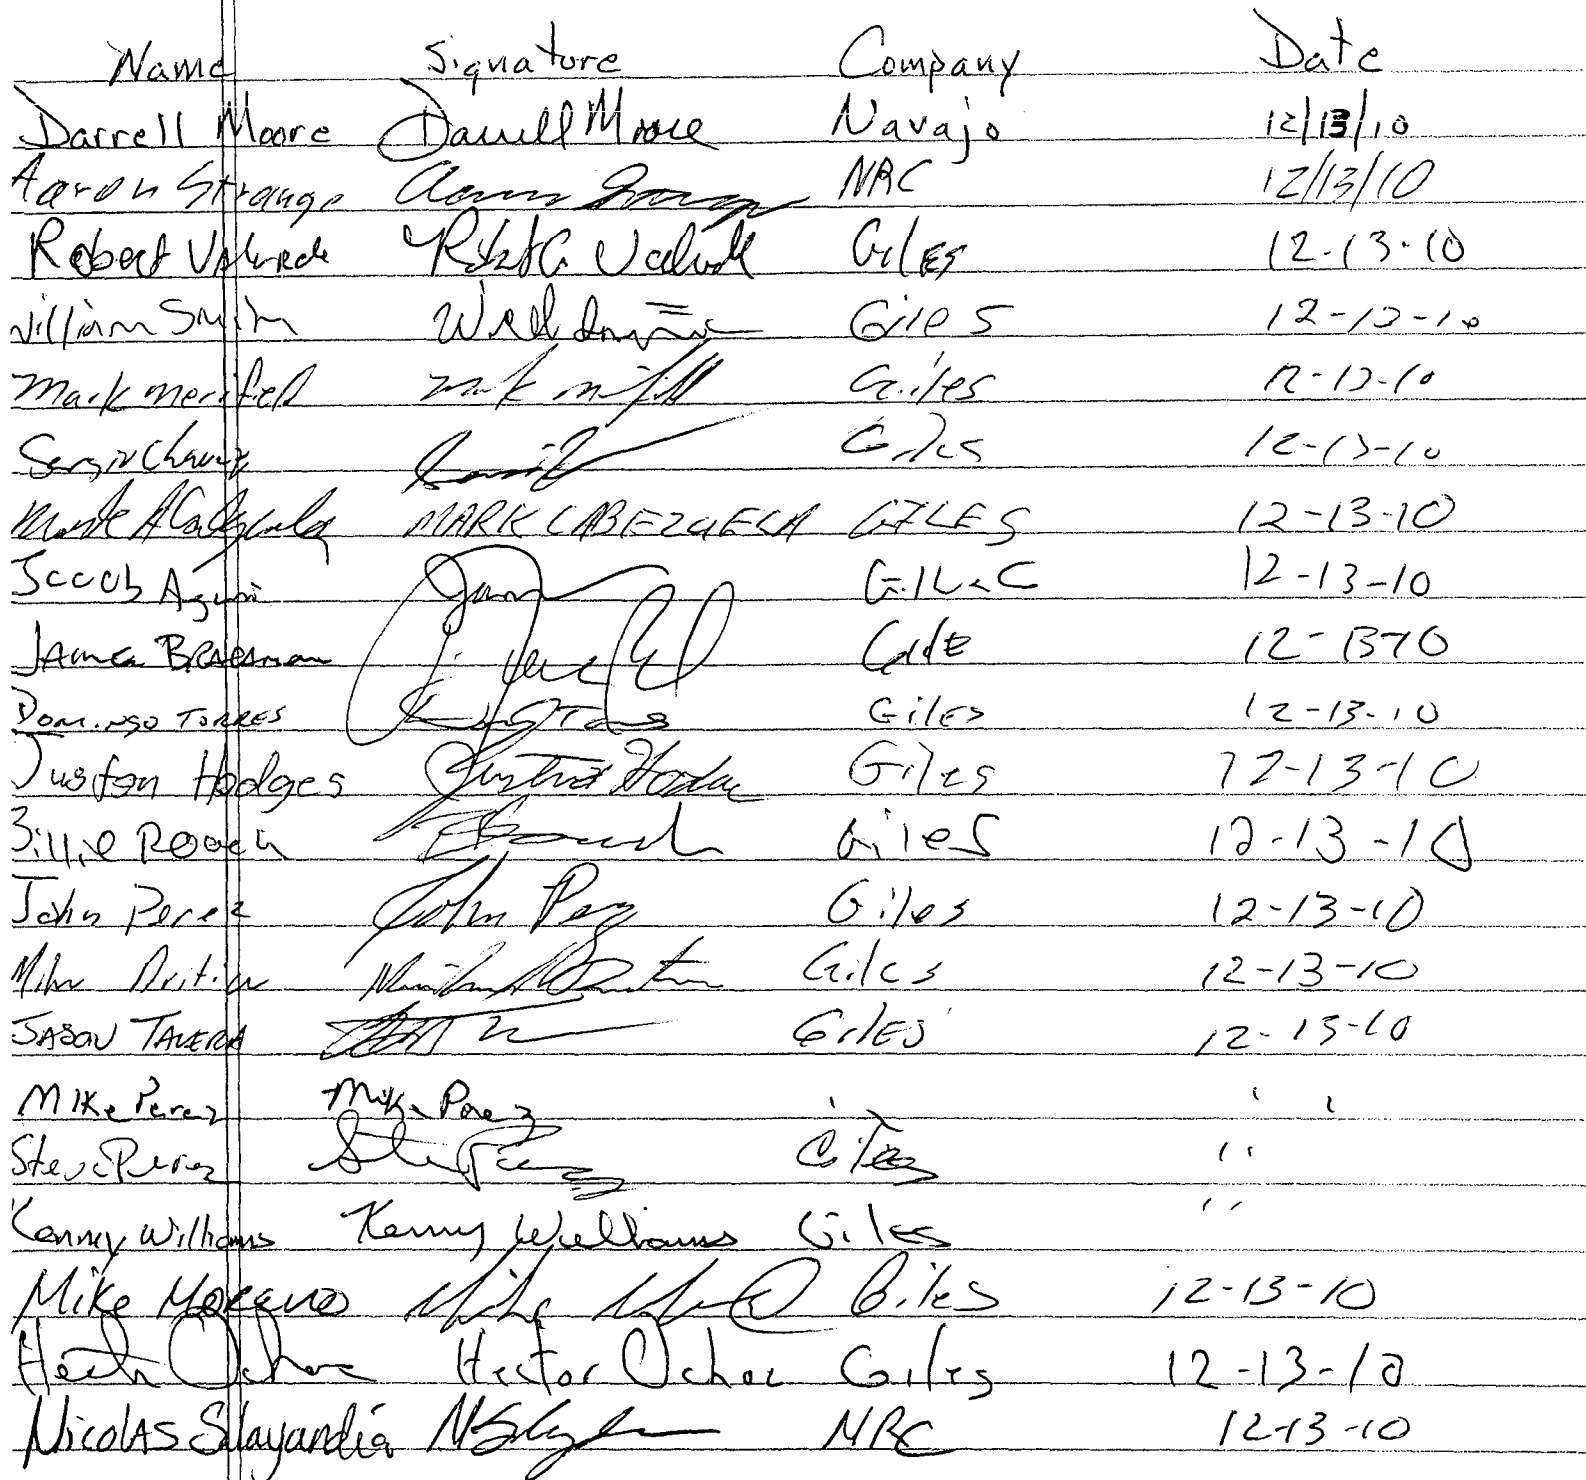 Name Signature Company Date
Darrell Moore Darrell Moore Navajo 12/13/10
Aaron Strange Aaron Strange NRC 12/13/10
Robert Valverde Robt G Valverde Giles 12-13-10
William Smith Will Smith Giles 12-13-10
Mark merifield mark merifield Giles 12-13-10
Sergio Chavez Giles 12-13-10
Mark A Cabezuela MARK CABEZUELA GILES 12-13-10
Jacob 12-13-10
James 12-13-10
Domingo TORRES Giles 12-13-10
Juston Hodges Juston Hodges Giles 12-13-10
Billie Roach Giles 12-13-10
John Perez John Perez Giles 12-13-10
Mike Giles 12-13-10
JASON TAVERA GilES 12-13-10
Mike Perez Mike Perez ' ' '
Steve Perez Steve Perez Giles ''
Kenney Williams Kenny Williams Giles ''
Mike Moreno Mike Giles 12-13-10
Hector Ochoa Hector Ochoa Giles 12-13-10
NicolAS Silayandia NRC 12-13-10